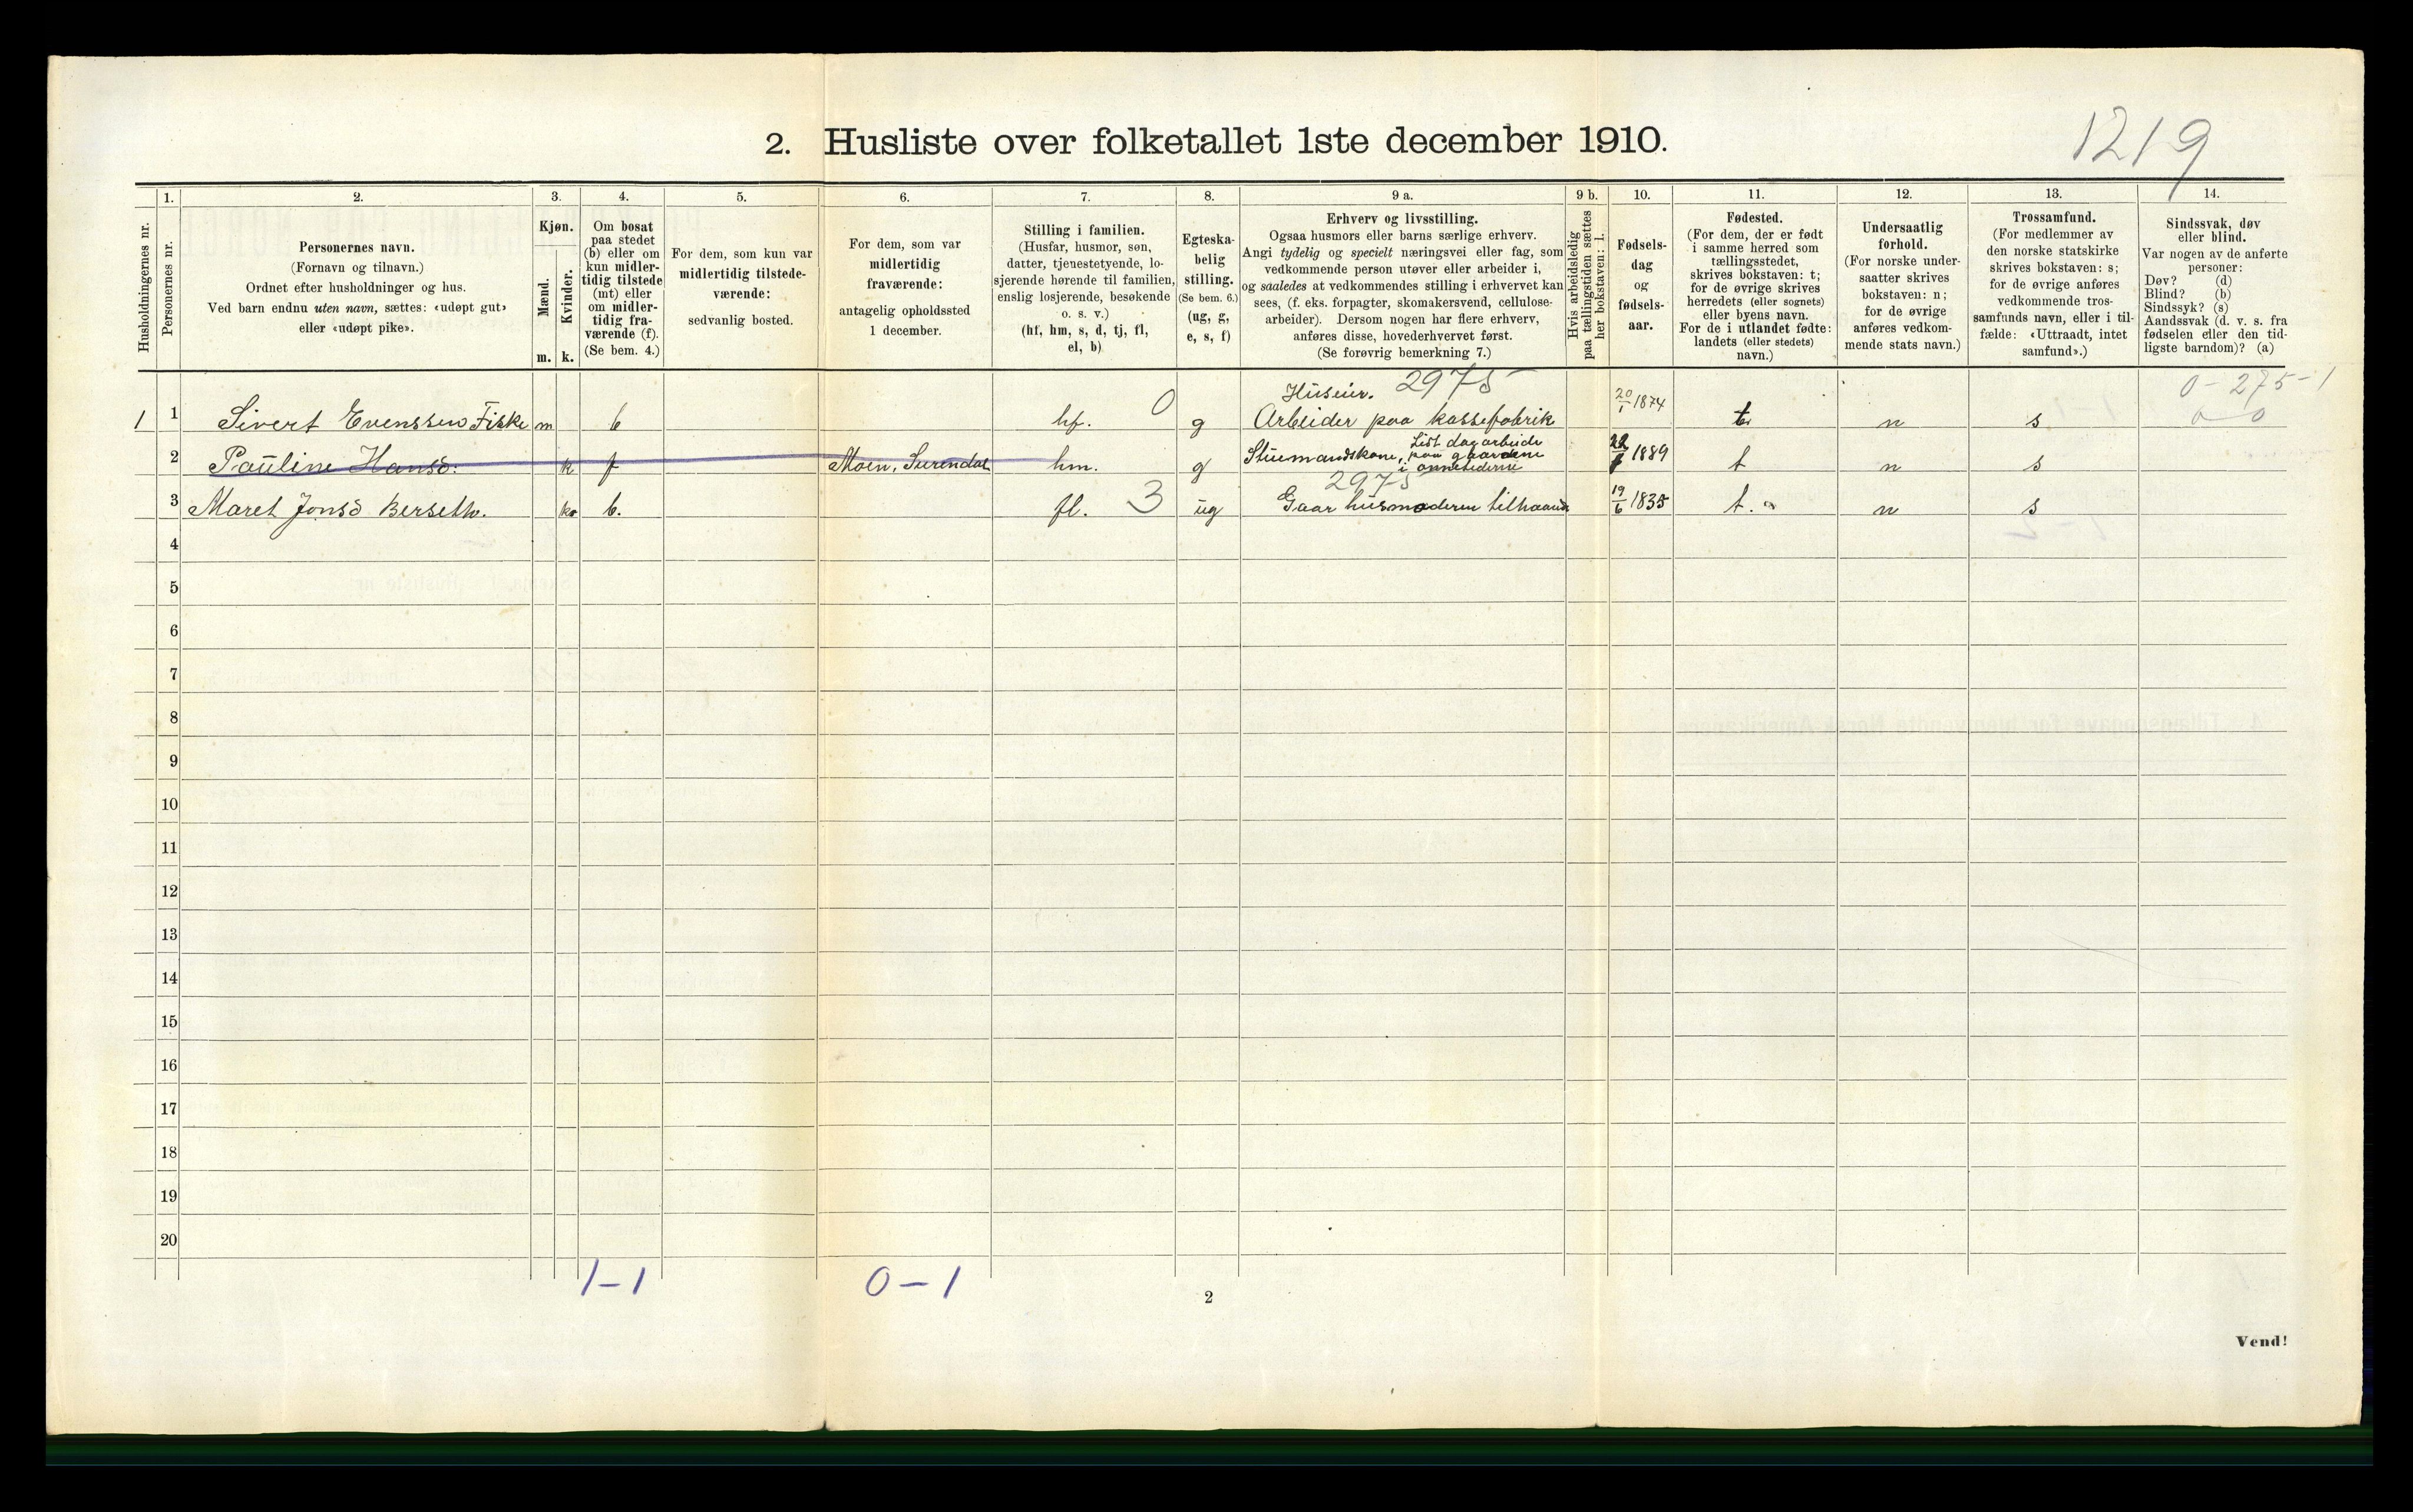 1219
2. Husliste over folketallet 1ste december 1910.
Husholdningernes nr.
1.
Personernes nr.
2.
Personernes navn.
(Fornavn og tilnavn.)
Ordnet efter husholdninger og hus.
Ved barn endnu uten navn, sættes: «udøpt gut»
eller «udøpt pike».
3.
Kjøn.
Mænd.
Kvinder.
m. k.
4.
Om bosat
paa stedet
(b) eller om
kun midler-
tidig tilstede
(mt) eller
om midler-
tidig fra-
værende (f).
(Se bem. 4.)
5.
For dem, som kun var
midlertidig tilstede-
værende:
sedvanlig bosted.
6.
For dem, som var
midlertidig
fraværende:
antagelig opholdssted
1 december.
7.
Stilling i familien.
(Husfar, husmor, søn,
datter, tjenestetyende, lo-
sjerende hørende til familien,
enslig losjerende, besøkende
o. s. v.)
(hf, hm, s, d, tj, fl,
el, b)
8.
Egteska-
belig
stilling.
(Se bem. 6.)
(ug, g,
e, s, f)
9 a.
Erhverv og livsstilling.
Ogsaa husmors eller barns særlige erhverv.
Angi tydelig og specielt næringsvei eller fag, som
vedkommende person utøver eller arbeider i,
og saaledes at vedkommendes stilling i erhvervet kan
sees, (f. eks. forpagter, skomakersvend, cellulose-
arbeider). Dersom nogen har flere erhverv,
anføres disse, hovederhvervet først.
(Se forøvrig bemerkning 7.)
9 b.
Hvis arbeidsledig
paa tællingstiden sættes
her bokstaven: l.
10.
Fødsels-
dag
og
fødsels-
aar.
11.
Fødested.
(For dem, der er født
i samme herred som
tællingsstedet,
skrives bokstaven: t;
for de øvrige skrives
herredets (eller sognets)
eller byens navn.
For de i utlandet fødte:
landets (eller stedets)
navn.)
12.
Undersaatlig
forhold.
(For norske under-
saatter skrives
bokstaven: n;
for de øvrige
anføres vedkom-
mende stats navn.)
13.
Trossamfund.
(For medlemmer av
den norske statskirke
skrives bokstaven: s;
for de øvrige anføres
vedkommende tros-
samfunds navn, eller i til-
fælde: «Uttraadt, intet
samfund».)
14.
Sindssvak, døv
eller blind.
Var nogen av de anførte
personer:
Døv? (d)
Blind? (b)
Sindssyk? (s)
Aandssvak (d. v. s. fra
fødselen eller den tid-
ligste barndom)? (a)
Huseier. 2975 0-275-1
1 1 Sivert Evenssen Fiske m b hf. 0 g Arbeider paa kassefabrik 20/1 1874 t n s 0-0
2 Pauline Hansd: k f Moen, Surendal hm. g Stuemandskone, Lidt dagarbeide paa gaardene i onnetiderne 1889 t n s
2975
3 Maret Jonsd Berseth. k b. fl. 3 ug Gaar husmoderen tilhaande 19/6 1835 t. n s
4
5
6
7
8
9
10
11
12
13
14
15
16
17
18
19
20
1-1 0-1
2
Vend!